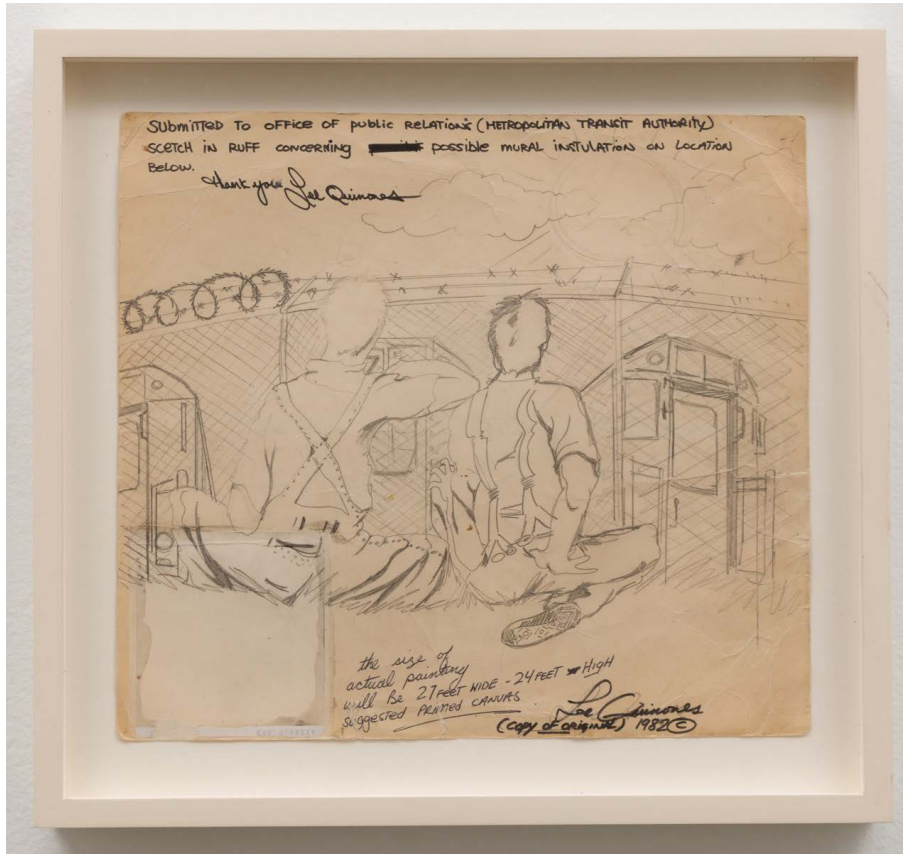 SUBMITTED TO OFFICE OF PUBLIC RELATIONS (METROPOLITAN TRANSIT AUTHORITY)
SCETCH IN RUFF CONCERNING POSSIBLE MURAL INSTULATION ON LOCATION
BELOW.
Thank you Lee Quinones
the size of
actual painting
will Be 27 FEET WIDE - 24 FEET HIGH
suggested PRIMED CANVAS
Lee Quinones
(COPY OF ORIGINAL) 1982 ©